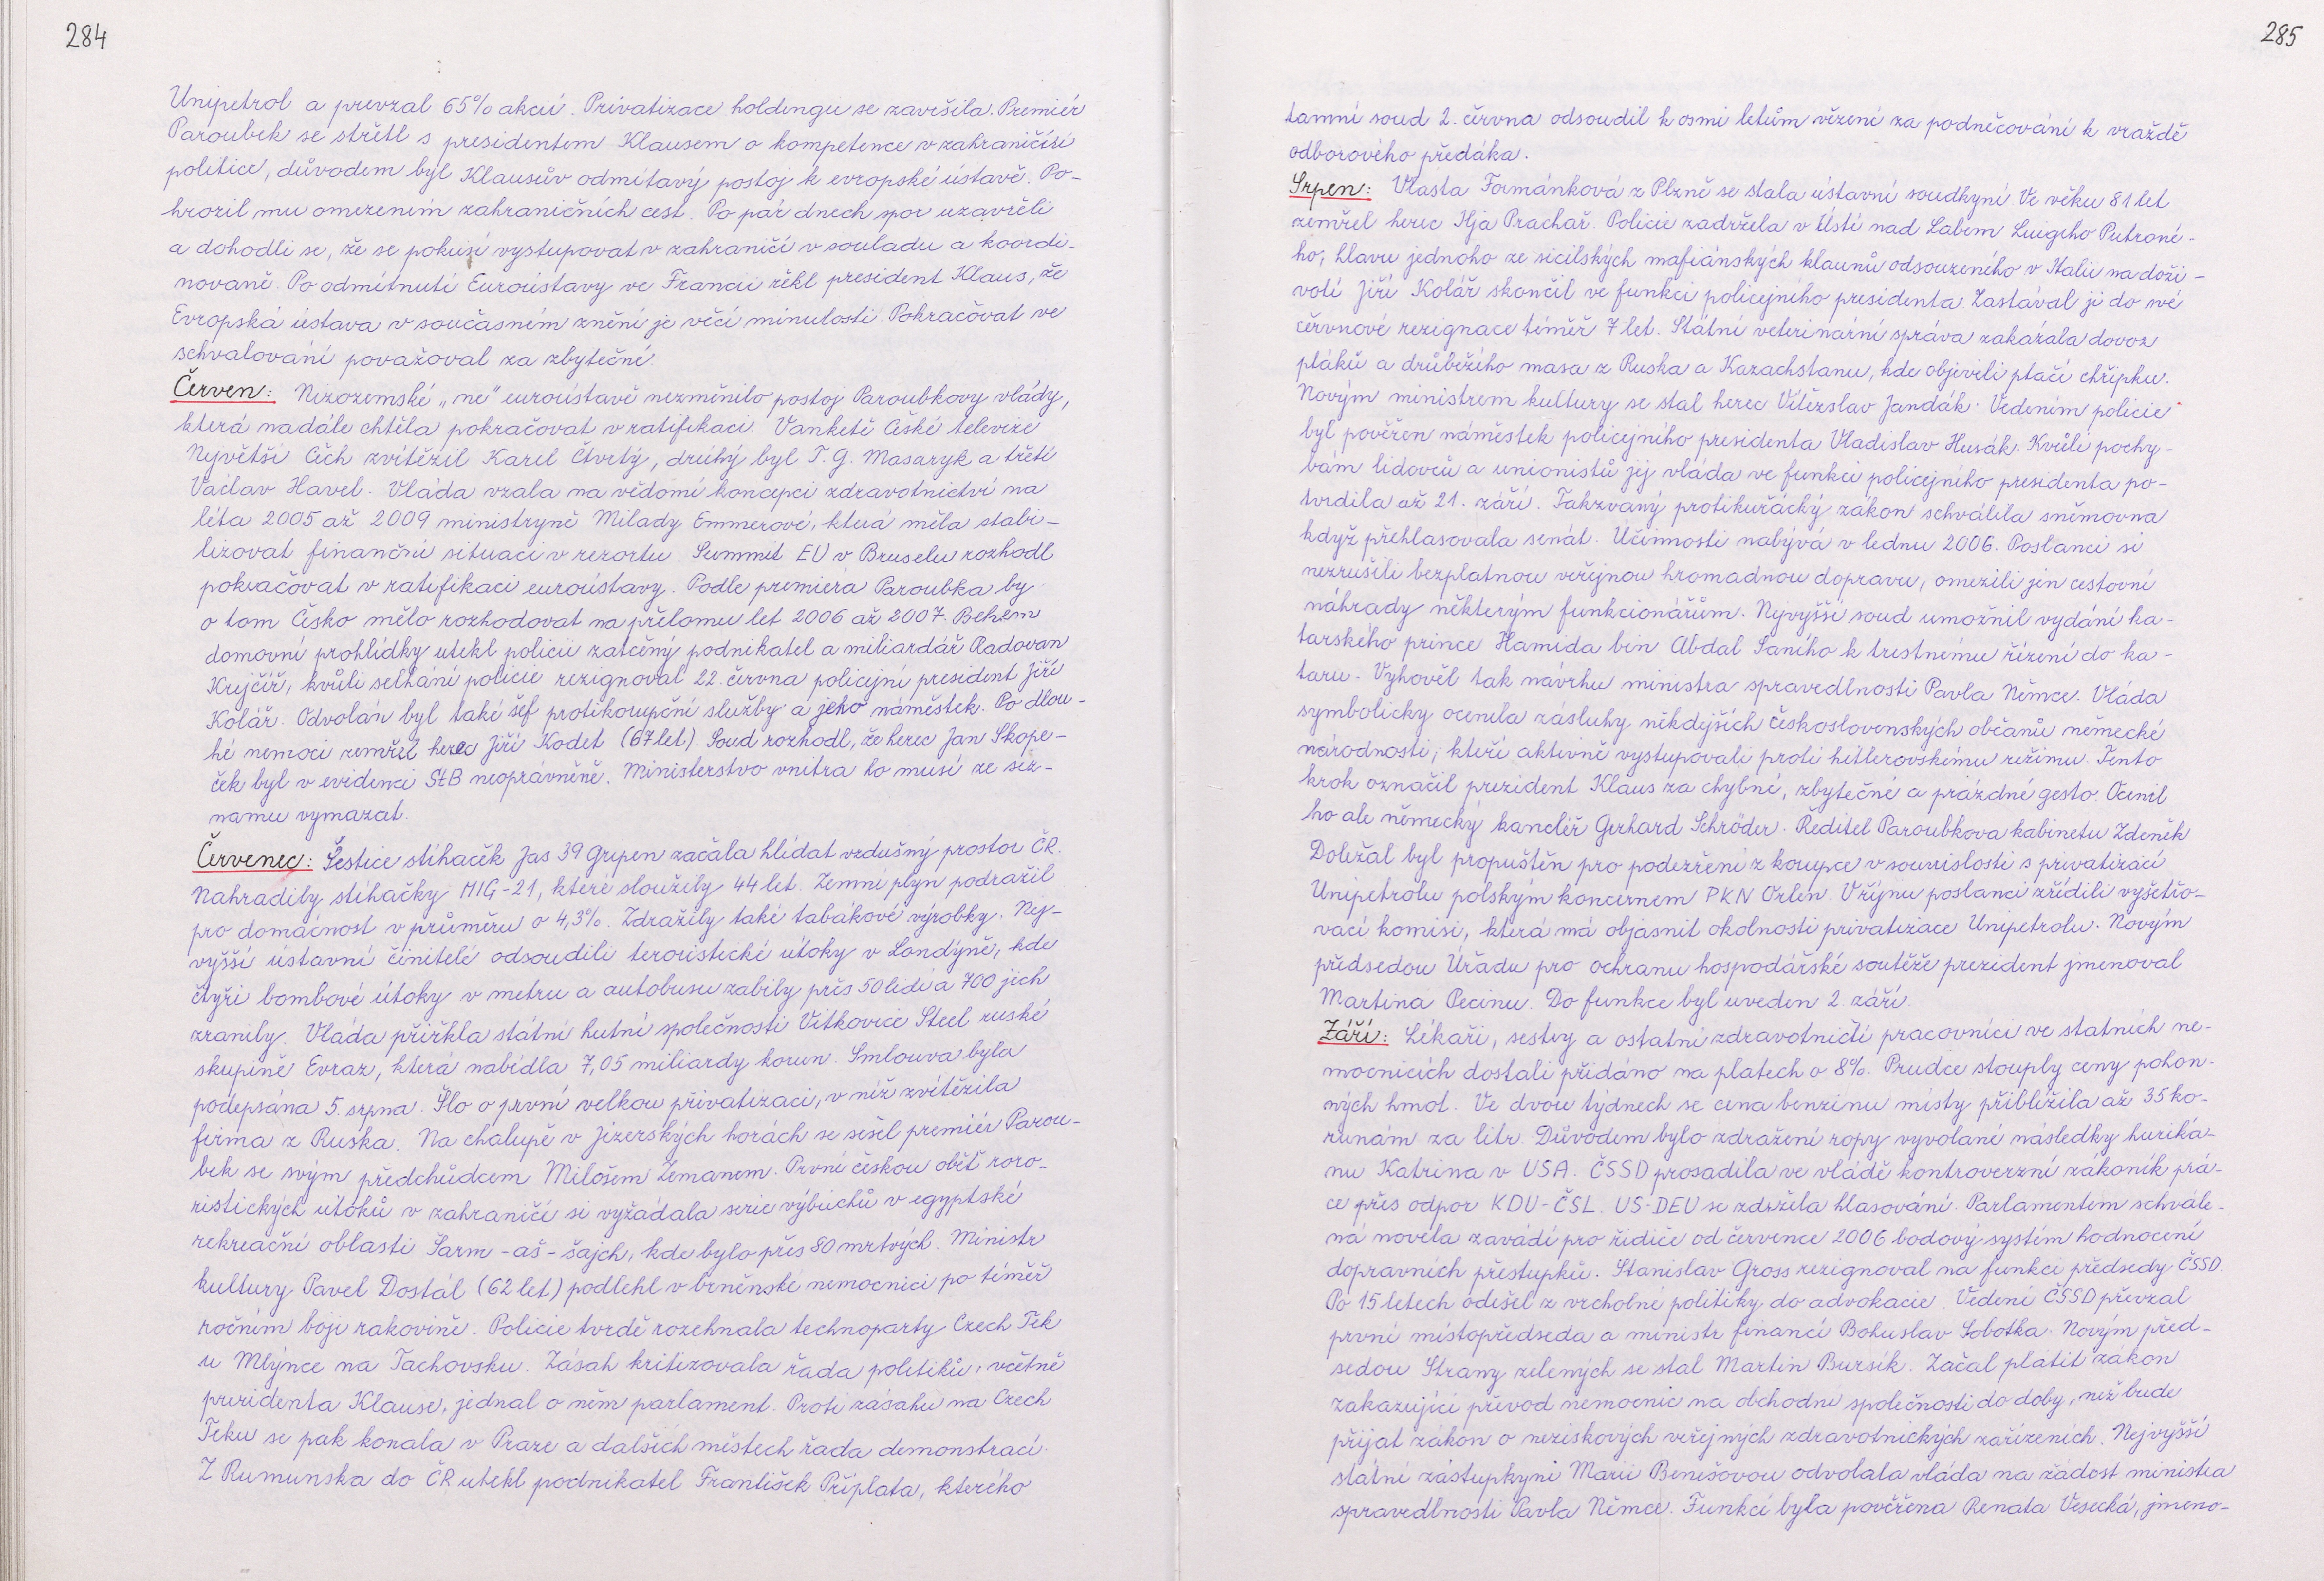 284
Unipetrol a prevzal 65% akcií. Privatizace holdingu se završila. Premiér
Paroubek se střetl s presidentem Klausem o kompetence v zahraničíti
politice, důvodem byl Klausův odmítavý postoj k evropské ústavě. Po-
hrozil mu omezením zahraničních cest. Po pár dnech spor uzavřeli
a dohodli se, že se pokusí vystupovat v zahraničí v souladu a koordi-
novaně. Po odmítnutí Euroústavy ve Francii řekl president Klaus, že
Evropská ústava v současném znění je věcí minulosti. Pokračovat ve
schvalování považoval za zbytečné.
Červen: Nizozemské „ne" euroústavě nezměnilo postoj Paroubkovy vlády,
která nadále chtěla pokračovat v ratifikaci. Vanketě České televize
Největší Čech zvítězil Karel Čtvrtý, druhý byl T. G. Masaryk a třetí
Václav Havel. Vláda vzala na vědomí koncepci zdravotnictví na
léta 2005 až 2009 ministryně Milady Emmerové, která měla stabi-
lizovat finanční situaci v rezortu. Summit EU v Bruselu rozhodl
pokračovat v ratifikaci euroústavy. Podle premiéra Paroubka by
o tom Česko mělo rozhodovat na přelomu let 2006 až 2007. Během
domovní prohlídky utekl policii zatčený podnikatel a miliardář Radovan
Krejčíř, kvůli selhání policie rezignoval 22. června policejní president Jiří
Kolář. Odvolán byl také šéf protikorupční služby a jeho náměstek. Po dlou-
hé nemoci zemřel herec Jiří Kodet (67 let). Soud rozhodl, že herec Jan Skope-
ček byl v evidenci StB neoprávněně. Ministerstvo vnitra ho musí ze sez-
namu vymazat.
Červenec: Šestice stíhaček Jas 39 Gripen začala hlídat vzdušný prostor ČR.
Nahradily stíhačky MIG-21, které sloužily 44 let. Zemní plyn podražil
pro domácnost v průměru o 4,3%. Zdražily také tabákové výrobky. Nej-
vyšší ústavní činitelé odsoudili teroristické útoky v Londýně, kde
čtyři bombové útoky v metru a autobusu zabily přes 50 lidí a 700 jich
zranily. Vláda přiřkla státní hutní společnosti Vítkovice Steel ruské
skupině Evraz, která nabídla 7,05 miliardy korun. Smlouva byla
podepsána 5. srpna. Šlo o první velkou privatizaci, v níž zvítězila
firma z Ruska. Na chalupě v Jizerských horách se sešel premiér Parou-
bek se svým předchůdcem Milošem Zemanem. První českou oběť roro-
ristických útoků v zahraničí si vyžádala serie výbuchů v egyptské
rekreační oblasti Šarm-aš-šajch, kde bylo přes 80 mrtvých. Ministr
kultury Pavel Dostál (62 let) podlehl v brněnské nemocnici po téměř
ročním boji rakovině. Policie tvrdě rozehnala technoparty Czech Tek
u Mlýnce na Tachovsku. Zásah kritizovala řada politiků, včetně
prezidenta Klause, jednal o něm parlament. Proti zásahu na Czech
Teku se pak konala v Praze a dalších městech řada demonstrací.
Z Rumunska do ČR utekl podnikatel František Příplata, kterého
285
tamní soud 2. června odsoudil k osmi letům vězení za podněcování k vraždě
odborového předáka.
Srpen: Vlasta Formánková z Plzně se stala ústavní soudkyní. Ve věku 81 let
zemřel herec Ilja Prachař. Policie zadržela v Ústí nad Labem Luigiho Putroné-
ho, hlavu jednoho ze sicilských mafiánských klaunů odsouzeného v Itálii na doži-
votí. Jiří Kolář skončil ve funkci policejního presidenta. Zastával ji do své
červnové rezignace téměř 7 let. Státní veterinární správa zakázala dovoz
ptáků a drůbežího masa z Ruska a Kazachstanu, kde objevili ptačí chřipku.
Novým ministrem kultury se stal herec Vítězslav Jandák. Vedením policie
byl pověřen náměstek policejního presidenta Vladislav Husák. Kvůli pochy-
bám lidovců a unionistů jej vláda ve funkci policejního presidenta po-
tvrdila až 21. září. Takzvaný protikuřácký zákon schválila sněmovna
když přehlasovala senát. Účinnosti nabývá v lednu 2006. Poslanci si
nezrušili bezplatnou veřejnou hromadnou dopravu, omezili jen cestovní
náhrady některým funkcionářům. Nejvyšší soud umožnil vydání ka-
tarského prince Hamida bin Abdal Saního k trestnímu řízení do ka-
taru. Vyhověl tak návrhu ministra spravedlnosti Pavla Němce. Vláda
symbolicky ocenila zásluhy někdejších československých občanů německé
národnosti, kteří aktivně vystupovali proti hitlerovskému režimu. Tento
krok označil prezident Klaus za chybné, zbytečné a prázdné gesto. Ocenil
ho ale německý kancléř Gerhard Schröder. Ředitel Paroubkova kabinetu Zdeněk
Doležal byl propuštěn pro podezření z koupce v souvislosti s privatizací
Unipetrolu polským koncernem PKN Orlen. V říjnu poslanci zřídili vyšetřo-
vací komisi, která má objasnit okolnosti privatizace Unipetrolu. Novým
předsedou Úřadu pro ochranu hospodářské soutěže prezident jmenoval
Martina Pecinu. Do funkce byl uveden 2. září.
Září: Lékaři, sestry a ostatní zdravotničtí pracovníci ve statních ne-
mocnicích dostali přidáno na platech o 8%. Prudce stouply ceny pohon-
ných hmot. Ve dvou týdnech se cena benzinu místy přiblížila až 35 ko-
runám za litr. Důvodem bylo zdražení ropy vyvolané následky huriká-
nu Katrina v USA. ČSSD prosadila ve vládě kontroverzní zákoník prá-
ce přes odpor KDU-ČSL. US-DEU se zdržela hlasování. Parlamentem schvále-
ná novela zavádí pro řidiče od července 2006 bodový systém hodnocení
dopravních přestupků. Stanislav Gross rezignoval na funkci předsedy ČSSD.
Po 15 letech odešel z vrcholné politiky do advokacie. Vedení ČSSD převzal
první místopředseda a ministr financí Bohuslav Sobotka. Novým před-
sedou Strany zelených se stal Martin Bursík. Začal platit zákon
zakazující převod nemocnic na obchodní společnosti do doby, než bude
přijat zákon o neziskových veřejných zdravotnických zařízeních. Nejvyšší
státní zástupkyni Marii Benešovou odvolala vláda na žádost ministra
spravedlnosti Pavla Němce. Funkcí byla pověřena Renata Vesecká, jmeno-